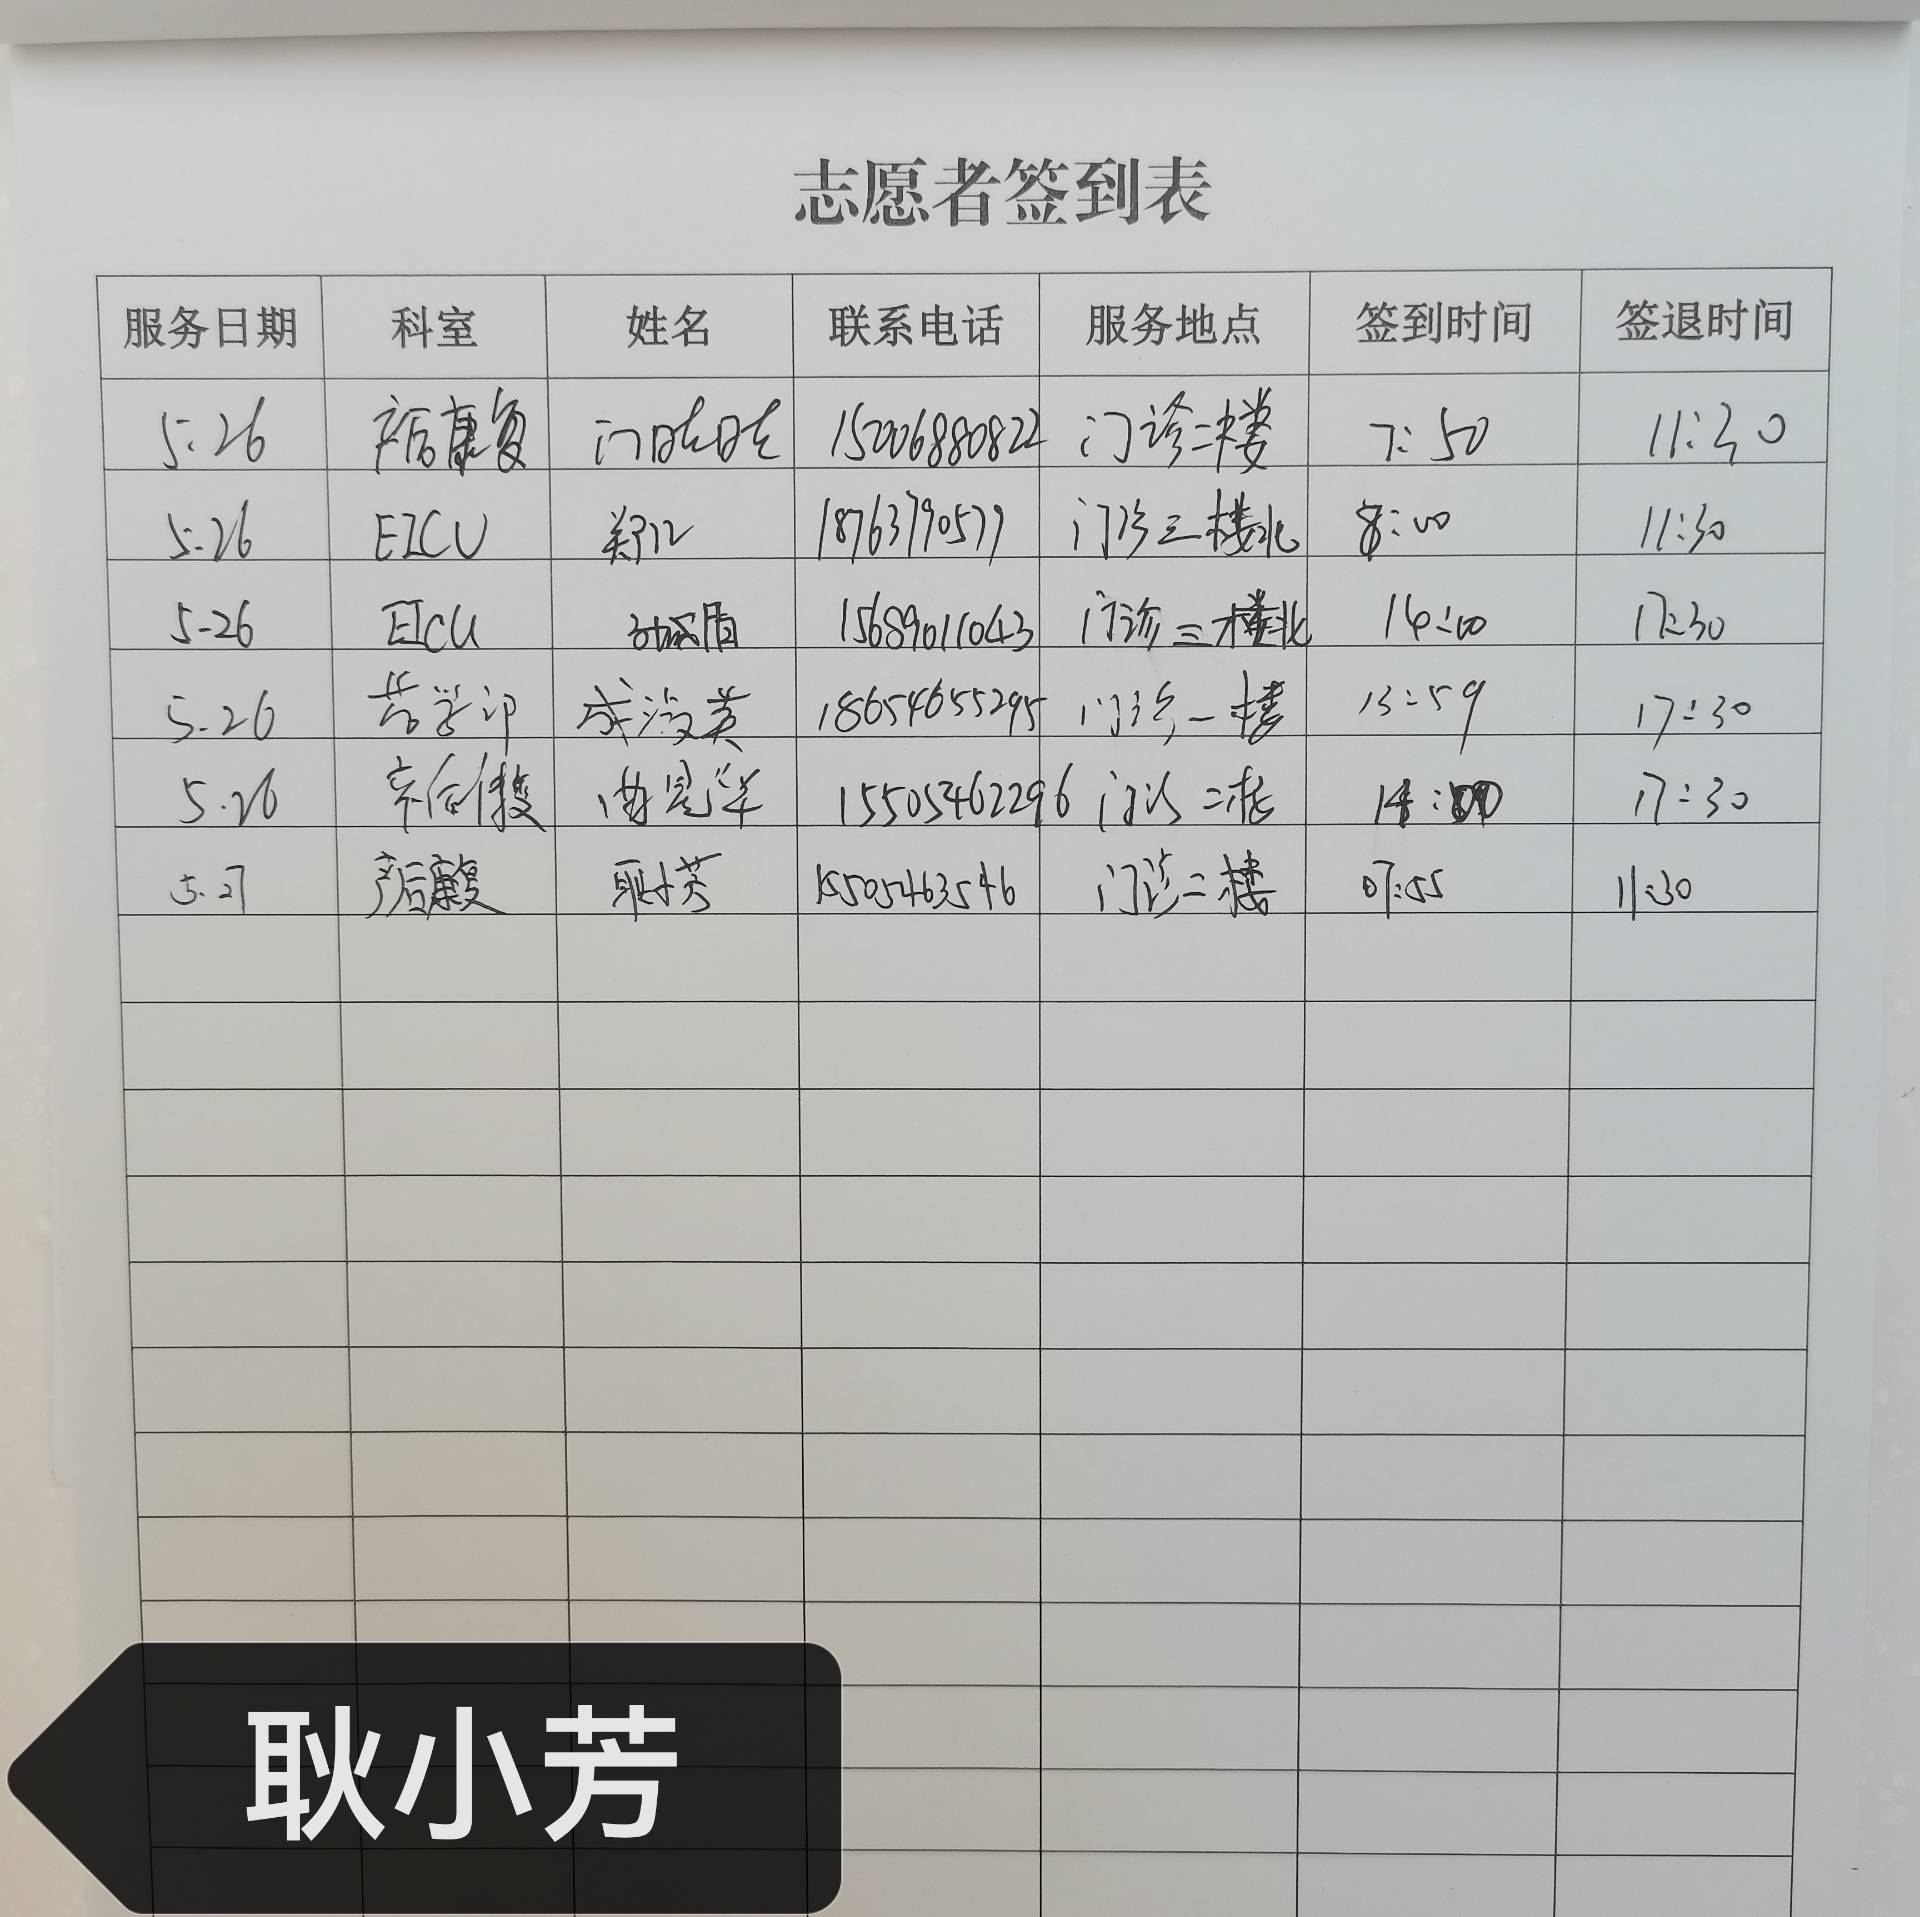 志愿者签到表
服务日期 科室 姓名 联系电话 服务地点 签到时间 签退时间
5.26 产后康复 门晓晓 15006880822 门诊二楼 7:50 11:30
5.26 EICU 郑 18763790577 门诊三楼北 8:00 11:30
5-26 EICU 15689011043 门诊三楼北 14:00 17:30
5.26 成 英 18654655295 门诊一楼 13:59 17:30
5.26 产后康复 15505462296 门诊二楼 14:00 17:30
5.27 产后康复 耿小芳 15505463546 门诊二楼 07:55 11:30
耿小芳